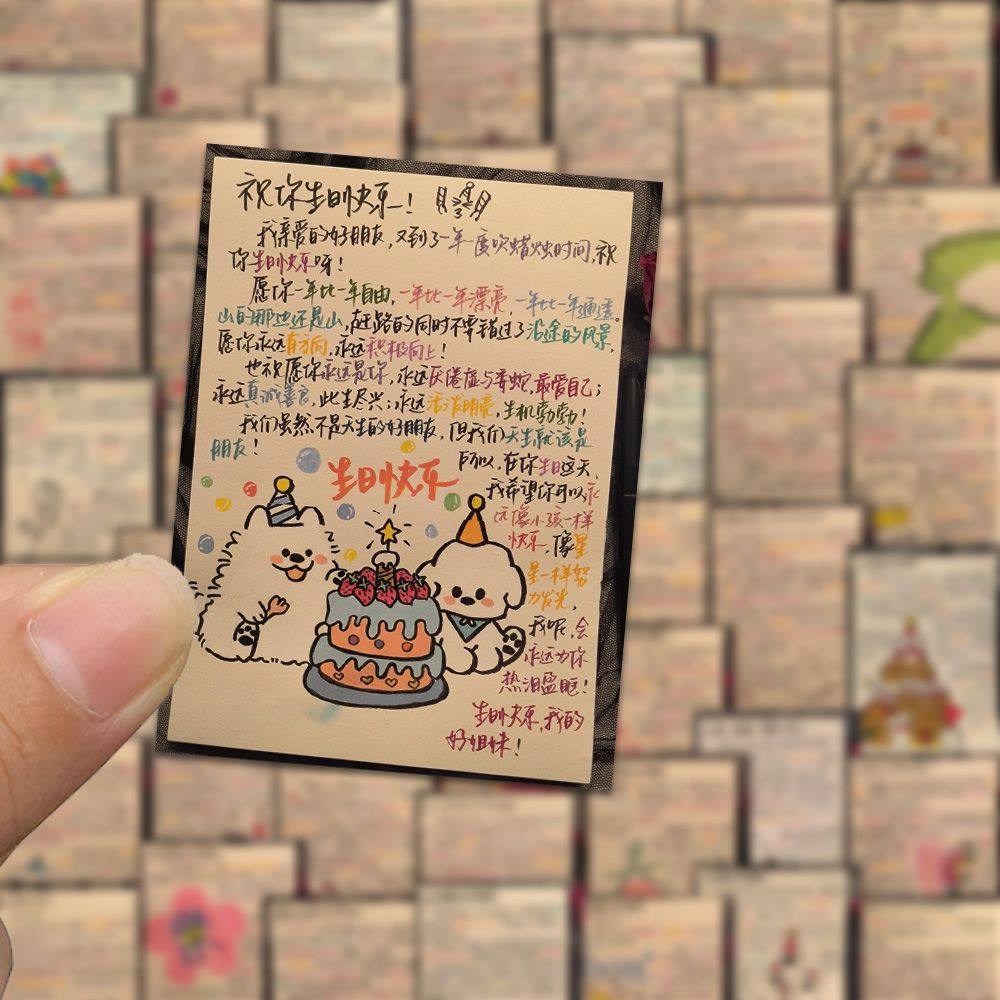 祝你生日快乐!
我亲爱的好朋友,又到了一年一度吹蜡烛时间,祝
你生日快乐呀!
愿你一年比一年自由,一年比一年漂亮,一年比一年通透。
山的那边还是山,赶路的同时不要错过了沿途的风景,
愿你永远有方向,永远积极向上!
也祝愿你永远是你,永远厌倦虚与委蛇,最爱自己;
永远真诚善良,此生尽兴;永远活泼明亮,生机勃勃!
我们虽然不是天生的好朋友,但我们天生就该是
朋友!
所以,在你生日这天,
生日快乐
我希望你可以永
远像小孩一样
快乐,像星
星一样努
力发光,
我呢,会
永远为你
热泪盈眶!
生日快乐,我的
好姐妹!